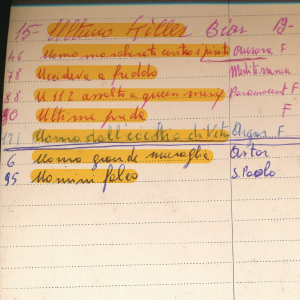 15- Ultimo Killer Cior 19-
46 Uomo mascherato contro i pirati Aurora F
78 Uccideva a freddo Mediterranea
88 U 112 assalto a queen mary Paramount F
90 Ultima preda F
121 Uomo dall'occhio di vetro Angar F
6 Uomo grande muraglia Astor
95 Uomini falco S. Paolo